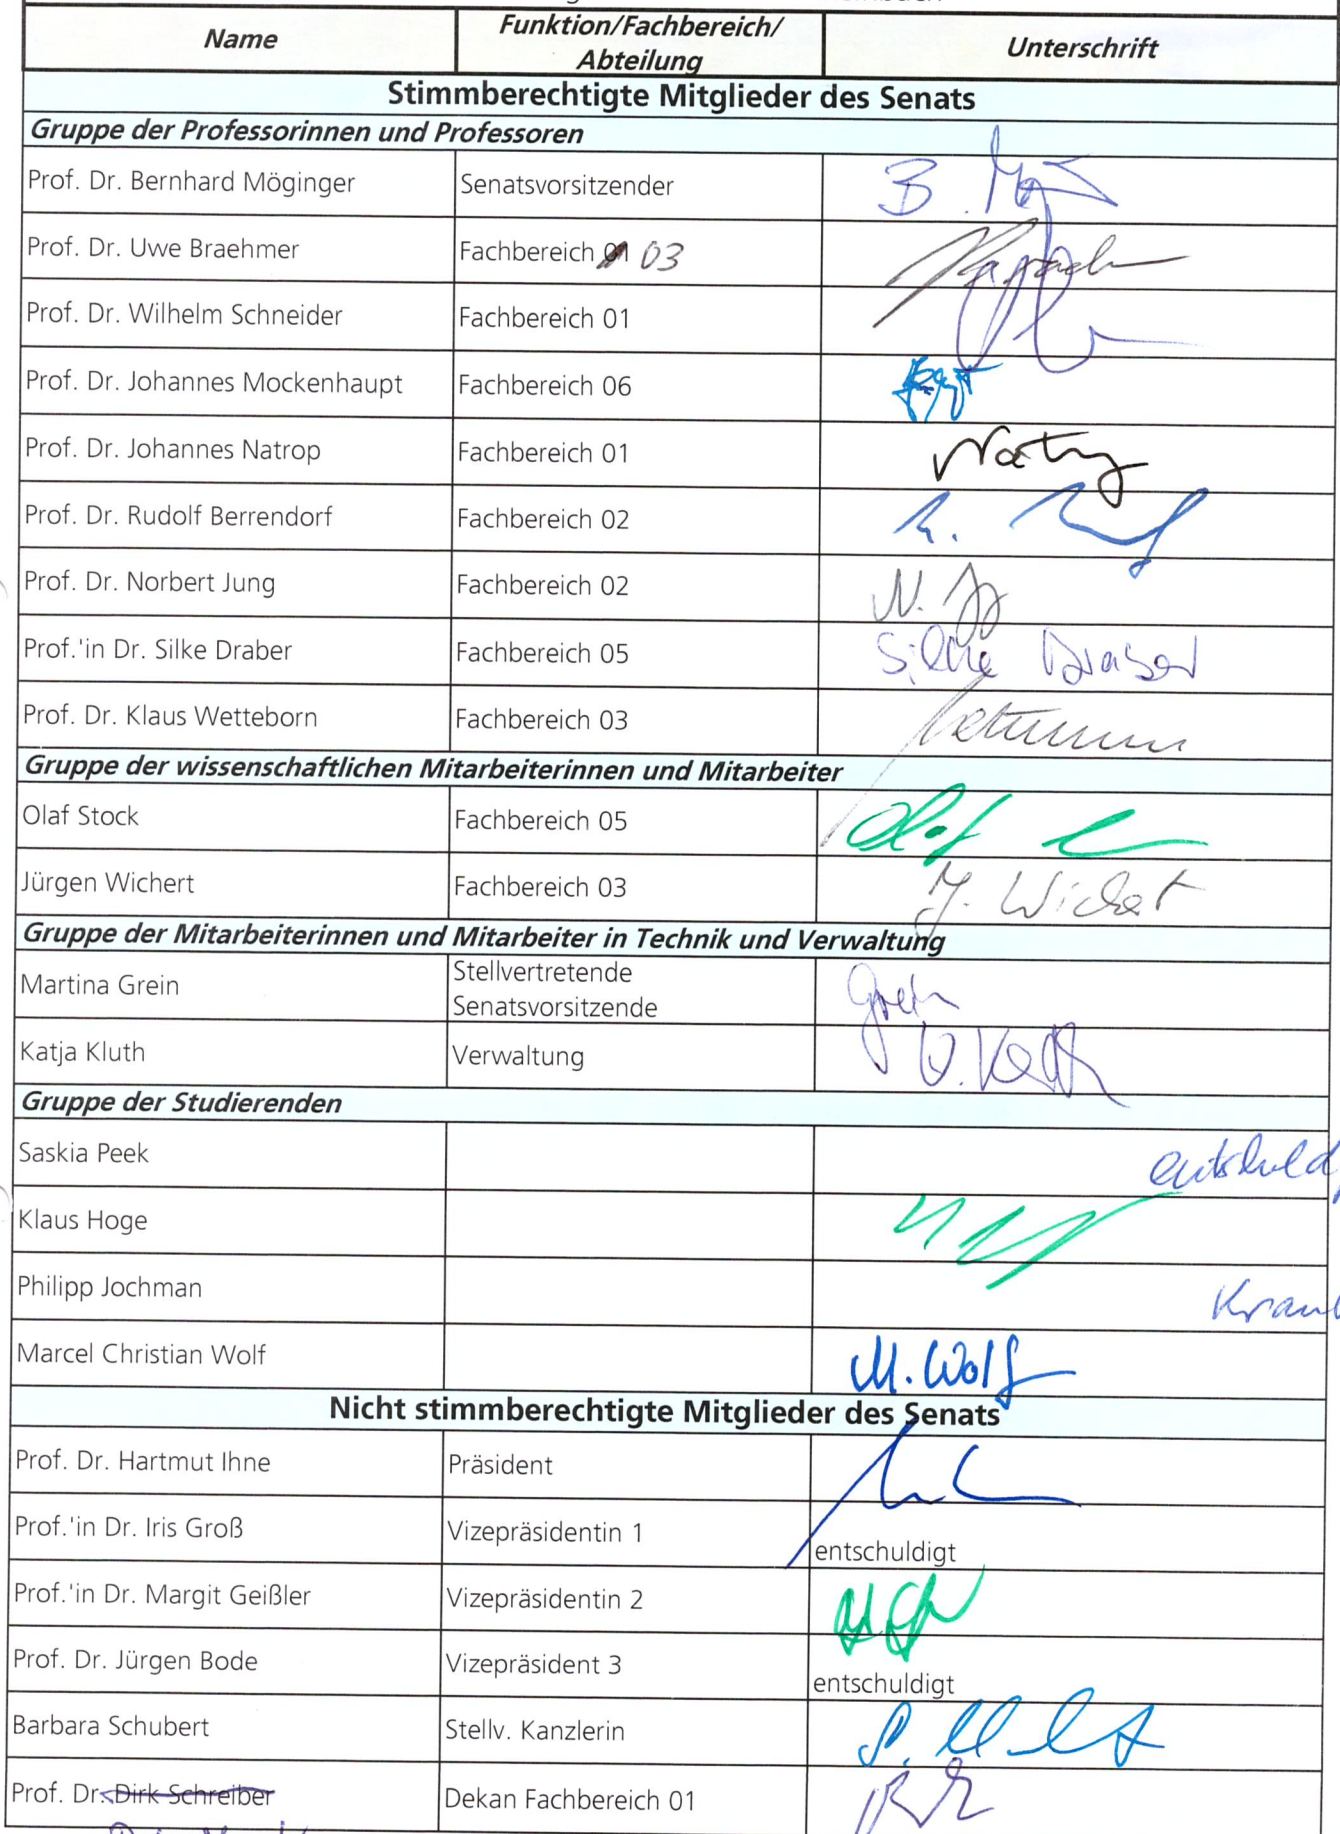 Name Funktion/Fachbereich/ Abteilung Unterschrift
Stimmberechtigte Mitglieder des Senats
Gruppe der Professorinnen und Professoren
Prof. Dr. Bernhard Möginger Senatsvorsitzender B.
Prof. Dr. Uwe Braehmer Fachbereich 03
Prof. Dr. Wilhelm Schneider Fachbereich 01
Prof. Dr. Johannes Mockenhaupt Fachbereich 06
Prof. Dr. Johannes Natrop Fachbereich 01
Prof. Dr. Rudolf Berrendorf Fachbereich 02
Prof. Dr. Norbert Jung Fachbereich 02 N.
Prof.'in Dr. Silke Draber Fachbereich 05 Silke Draber
Prof. Dr. Klaus Wetteborn Fachbereich 03
Gruppe der wissenschaftlichen Mitarbeiterinnen und Mitarbeiter
Olaf Stock Fachbereich 05 Olaf
Jürgen Wichert Fachbereich 03 J. Wichert
Gruppe der Mitarbeiterinnen und Mitarbeiter in Technik und Verwaltung
Martina Grein Stellvertretende Senatsvorsitzende Grein
Katja Kluth Verwaltung
Gruppe der Studierenden
Saskia Peek entschuld
Klaus Hoge
Philipp Jochman Krank
Marcel Christian Wolf M. Wolf
Nicht stimmberechtigte Mitglieder des Senats
Prof. Dr. Hartmut Ihne Präsident
Prof.'in Dr. Iris Groß Vizepräsidentin 1 entschuldigt
Prof.'in Dr. Margit Geißler Vizepräsidentin 2
Prof. Dr. Jürgen Bode Vizepräsident 3 entschuldigt
Barbara Schubert Stellv. Kanzlerin
Prof. Dr. Dirk Schreiber Dekan Fachbereich 01